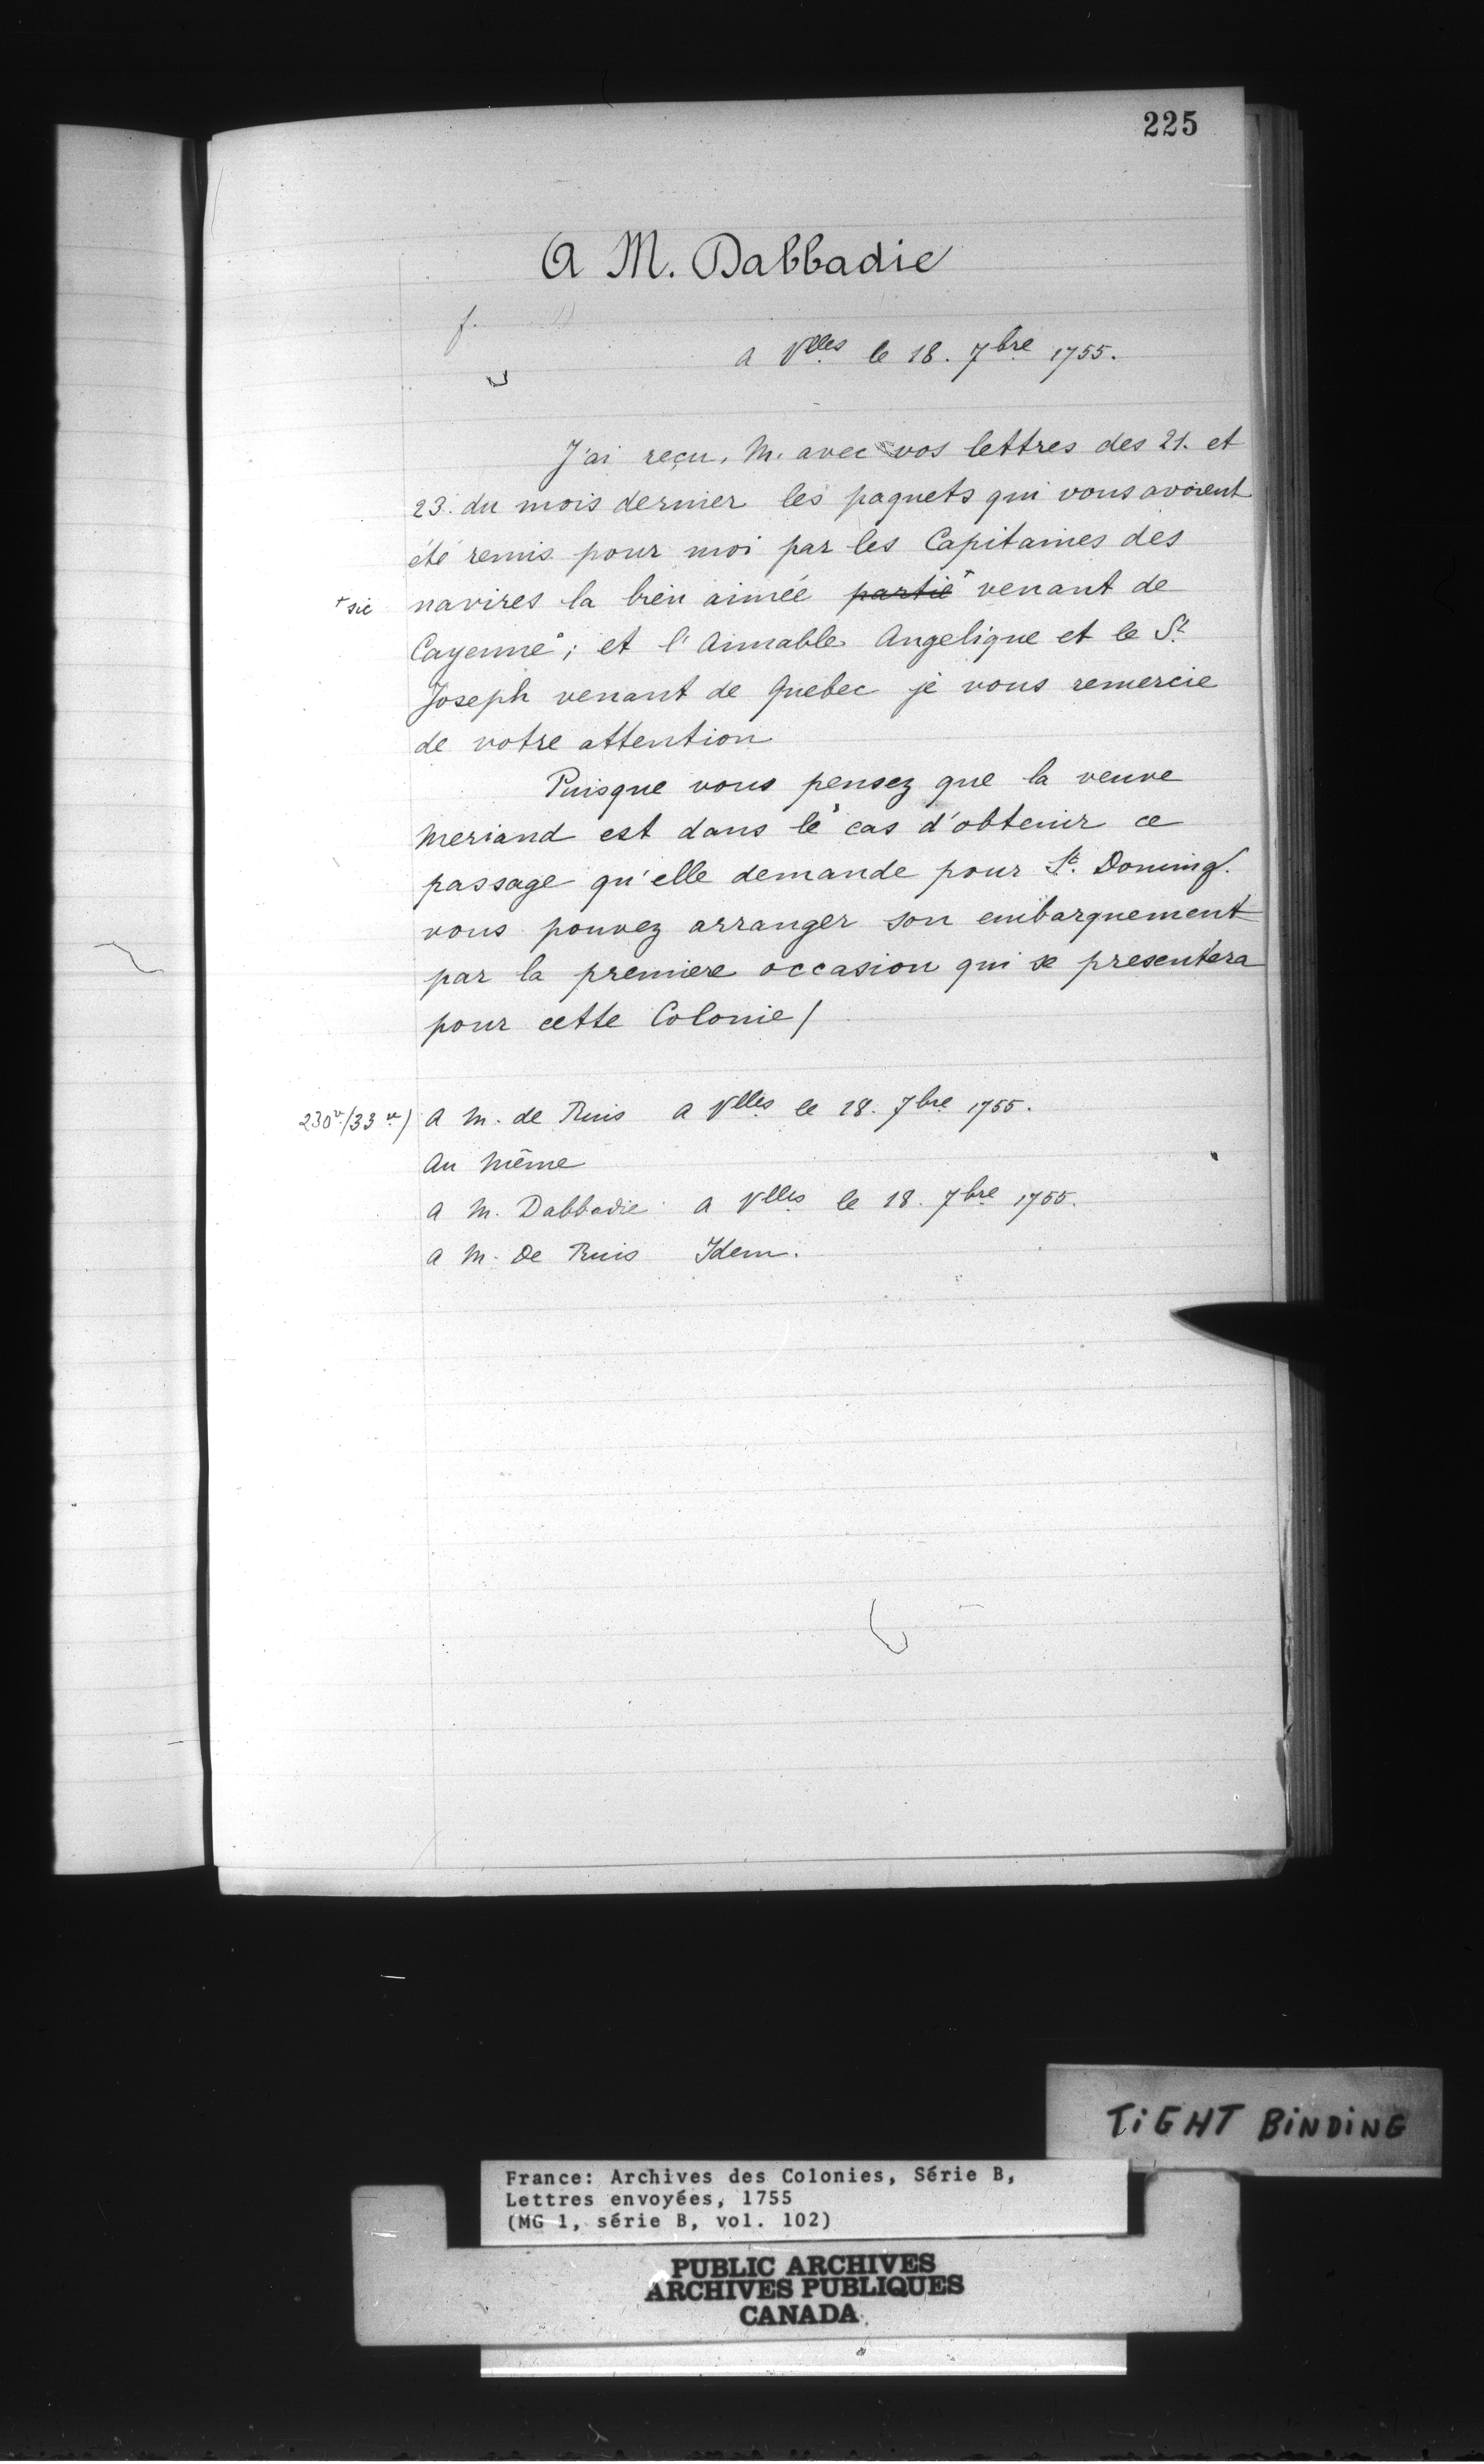 225
A M. Dabbadie
f.
a Vlles le 18. 7bre 1755.
J'ai reçu, M. avec vos lettres des 21. et
23. du mois dernier les paquets qui vous avoient
été remis pour moi par les Capitaines des
+ sic navires la bien aimée ~~partie~~+ venant de
Cayenne; et l'Aimable Angelique et le St
Joseph venant de Quebec je vous remercie
de votre attention
Puisque vous pensez que la veuve
Meriand est dans le cas d'obtenir ce
passage qu'elle demande pour St. Doming.
vous pouvez arranger son embarquement
par la premiere occasion qui se presentera
pour cette Colonie/
230v./33v/) A M. de Ruis a Vlles le 18. 7bre 1755.
Au Même
A M. Dabbadie a Vlles le 18. 7bre 1755.
A M. De Ruis Idem.
TiGHT BiNDiNG
France: Archives des Colonies, Série B,
Lettres envoyées, 1755
(MG 1, série B, vol. 102)
PUBLIC ARCHIVES
ARCHIVES PUBLIQUES
CANADA